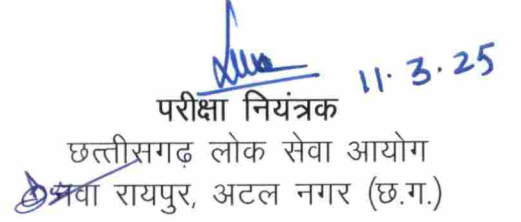 11.3.25
परीक्षा नियंत्रक
छत्तीसगढ़ लोक सेवा आयोग
नवा रायपुर, अटल नगर (छ.ग.)